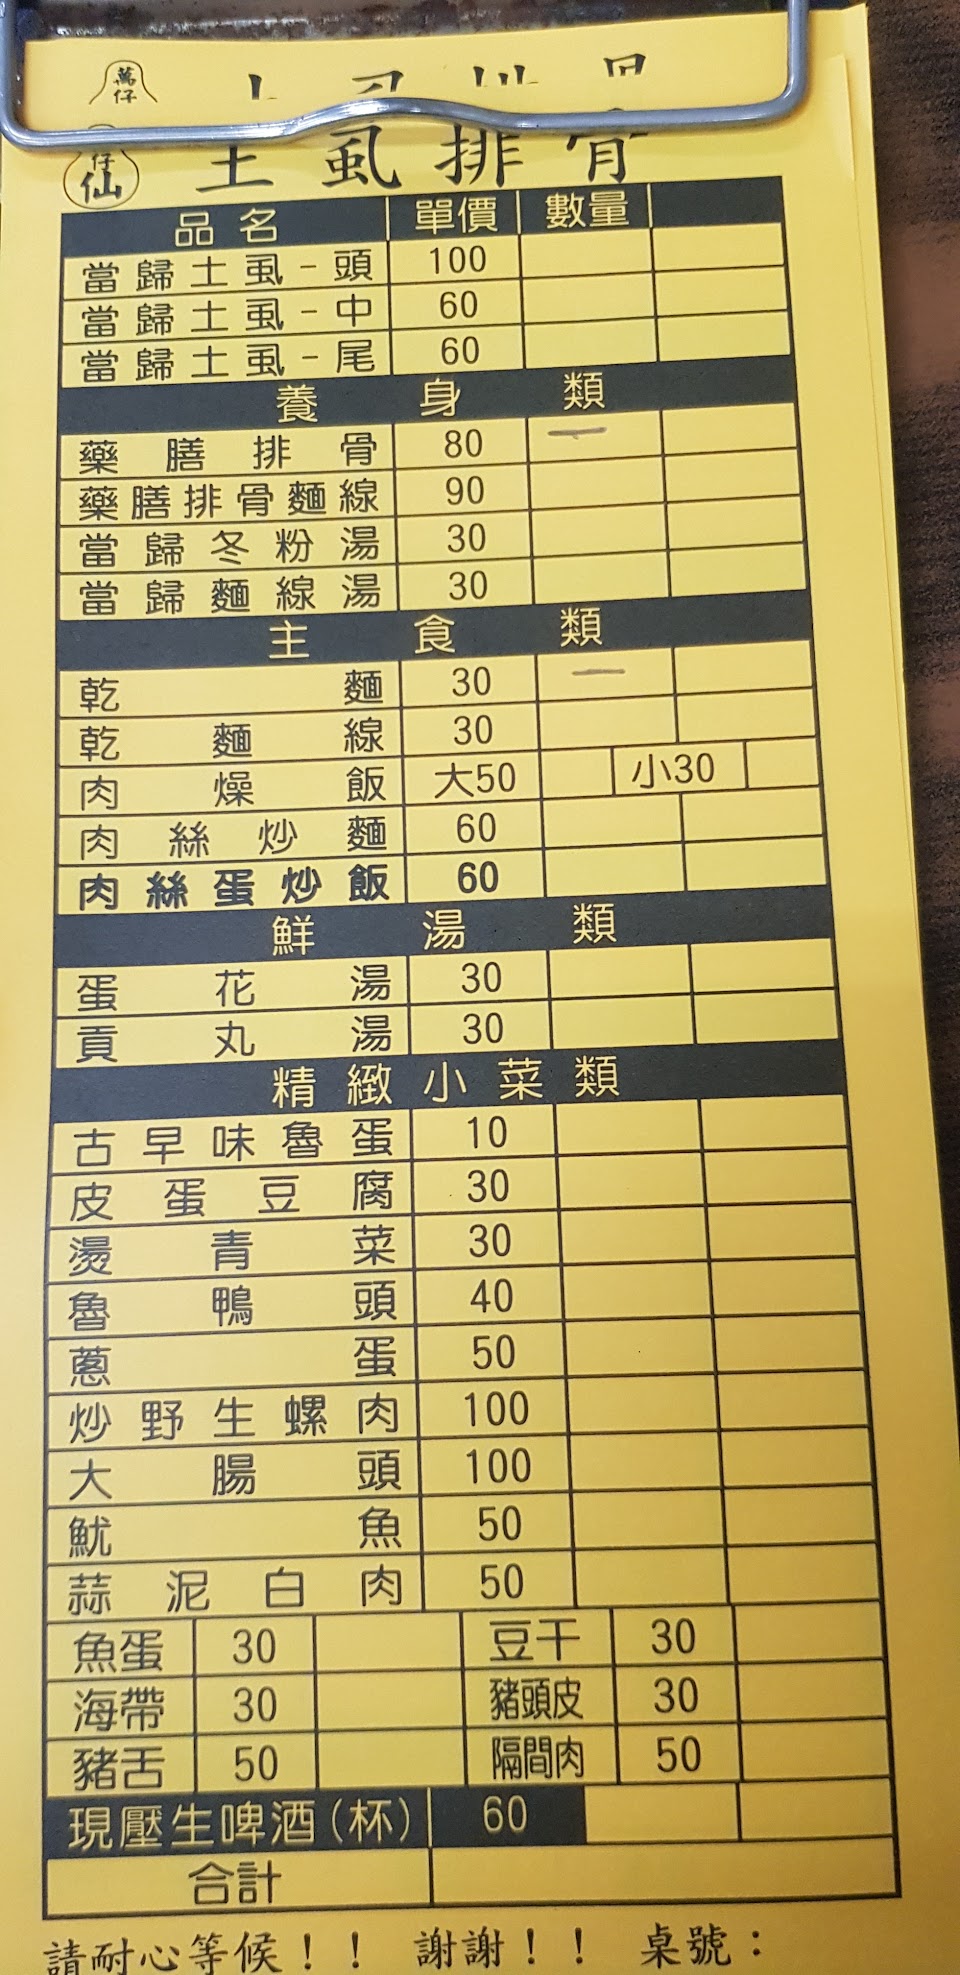 萬仔
仔仙 土虱排骨
品名 單價 數量
當歸土虱-頭 100
當歸土虱-中 60
當歸土虱-尾 60
養身類
藥膳排骨 80 一
藥膳排骨麵線 90
當歸冬粉湯 30
當歸麵線湯 30
主食類
乾麵 30 一
乾麵線 30
肉燥飯 大50 小30
肉絲炒麵 60
肉絲蛋炒飯 60
鮮湯類
蛋花湯 30
貢丸湯 30
精緻小菜類
古早味魯蛋 10
皮蛋豆腐 30
燙青菜 30
魯鴨頭 40
蔥蛋 50
炒野生螺肉 100
大腸頭 100
魷魚 50
蒜泥白肉 50
魚蛋 30 豆干 30
海帶 30 豬頭皮 30
豬舌 50 隔間肉 50
現壓生啤酒(杯) 60
合計
請耐心等候！！ 謝謝！！ 桌號：